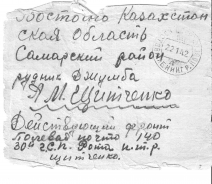 Восточно Казахстан
ская Область
Самарский район
рудник Джумба
Я М Щитченко
Действующий фронт
Полевая почта 140
30й Г.С.П. Рота п.т.р.
Щитченко.